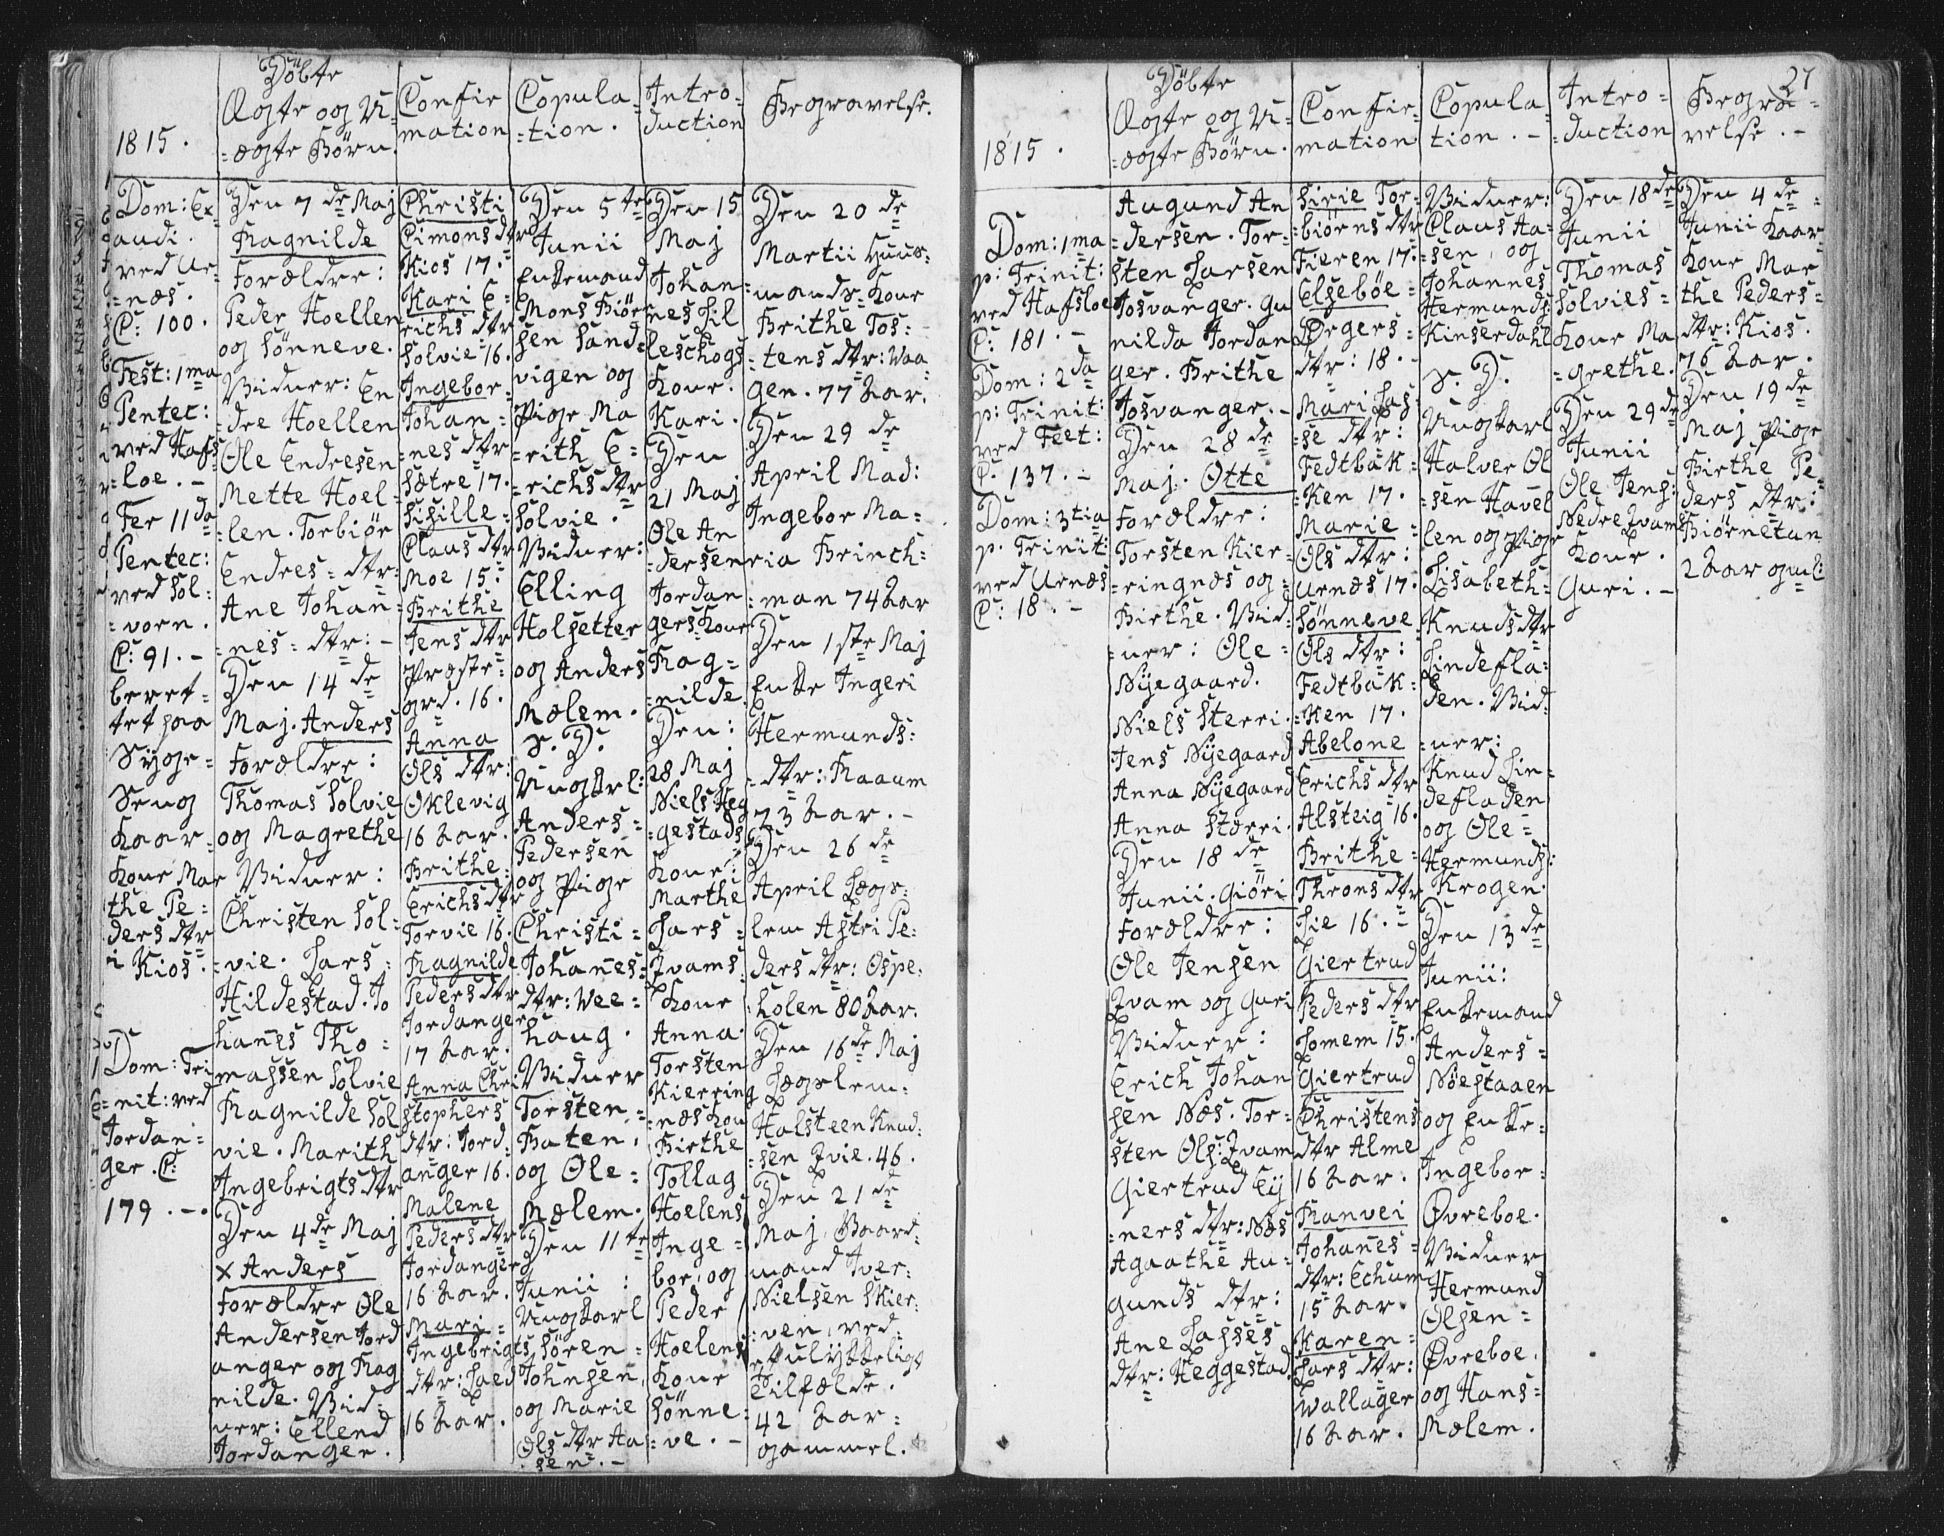 1815.
Dom: Ex
audi.
ved Ur-
=næs.
C: 100.
Fest: 1ma
Pentec:
ved Hafs
=loe. -
Fer 11da
Pentec:
ved Sol:
=vorn.
C: 91. -
beret-
tet paa
Syge=
Seng
Kaar=
Kone Mar
the Pe=
ders dtr
i Kios.
Dom: Tri
=nit: ved
Jordan=
ger. C:
179. -.
Döbte
Ægte og U=
=ægte Börn.
Den 7de Maj
Ragnilde
Forældre:
Peder Hoellen
og Sönneve.
Vidner: En
dre Hoellen
Ole Endresen
Mette Hoel=
=len. Torbiør
Endres= dtr:
Ane Johan=
nes= dtr: -
Den 14de
Maj. Anders
Forældre:
Thomas Solvie
og Magrethe
Vidner:
Christen Sol=
=vie. Lars=
Hildestad. Jo
hanes Tho=
massen Solvie
Ragnilde Sol
vie. Marith
Ingebrigts dtr
Den 4de Maj
x Anders
Forældre Ole
Andersen Jord
anger og Rag
nilde. Vid=
ner: Ellend
Jordanger.
Confir
mation
Christi
Cimons dtr
Kios 17.
Kari E=
richs dtr
Solvie 16.
Ingebor=
Johan=
=nes dtr
Sætre 17.
Sisille=
Claus dtr
Moe 15:
Brithe
Jens dtr
Præste=
grd. 16.
Anna
Ols dtr:
Oklevig
16 Aar.
Brithe:
Erichs dtr
Torvie 16.
Ragnilde
Peders dtr
Jordanger
17 Aar.
Anna Chri
stophers
dtr: Jord
anger 16.
Malene
Peders dtr
Jordanger
16 Aar.
Mari=
Ingebrigts
dtr: Laed
16 Aar.
Copula=
=tion.
Den 5te
Junii
Enkemand
Mons Biör
sen Sand=
vigen og
Pige Ma
=rith E=
=richs dtr
Solvie.
Vidner:
Elling
Holsetter
og Anders
Mælem.
S. D.
Ungkarl:
Anders=
Pedersen
og Pige
Christi=
Johanes=
dtr: Vee=
haug.
Vidner
Torsten=
Baten.
og Ole=
Mælem.
Den 11te
Junii:
Ungkarl
Sören=
Johnsen,
og Marie
Ols dtr Aa
=sen. -
Intro=
duction
Den 15
Maj
Johan=
nes Lil
leschogs
Kone.
Kari.
Den
21 Maj
Ole An
dersen
Jordan
gers Kone
Rag=
=nilde.
Den:
28 Maj
Niels Heg
=gestads
Kone:
Marthe
Lars=
Qvams
Kone
Anna.
Torsten
Kierring
næs Kon
Birthe
Tollag
Hoelens
Inge=
bor, og
Peder
Hoelens
Kone
Sönne=
=ve. -
Begravelse.
Den 20de
Martii Huus=
=mands= Kone
Brithe Tos:
=tens dtr: Waa
gen. 77 Aar.
Den 29de
April Mad:
Ingebor Ma=
ria Brinch=
=man 74 Aar
Den 1ste Maj
Enke Ingeri
Hermunds=
=dtr: Raaum
73 Aar. -
Den 26de
April Lægs=
lem Astri Pe=
ders dtr: Ospe.
holen 80 Aar.
Den 16de Maj
Lægslem=
Halsteen Knud=
=sen Qvie. 46.
Den 21de
Maj. Gaard=
mand Iver=
Nielsen Skier=
=ven, ved=
et ulykkeligt
Tilfælde.
42 Aar=
gammel.
27
1815.
Dom: 1ma
p: Trinit:
ved Hafsloe
C: 181. -
Dom: 2da
p: Trinit:
ved Feet:
C: 137. -
Dom: 3tia
p: Trinit:
ved Urnæs
C: 18. -
Döbte
Ægte og U=
=ægte Börn.
Augund An
=dersen. Tor=
sten Larsen
Josvanger. Gu
nilda Jordan
ger. Brithe
Josvanger. -
Den 28de
Maj. Otte
Forældre:
Torsten Kier=
=ringnæs og=
Birthe. Vid=
=ner: Ole=
Nyegaard.
Niels Sterri.
Jens Nyegaard
Anna Nyegaard
Anna Størri.
Den 18de
Junii. Giöri
Forældre:
Ole Jensen
Qvam og Guri
Vidner:
Erich Johan
sen Næs. Tor=
sten Ols: Qvam
Giertrud Ey
=ners dtr: Næs
Agaathe Au=
gunds dtr:
Ane Lasses
dtr: Heggestad.
Confir=
mation
Sirie Tor=
=biörns dtr
Fieren 17.
Elsebøe=
Börgers=
dtr: 18. -
Mari Las=
=se dtr:
Fedtbak=
=ken 17.
Marie=
Ols dtr:
Urnæs 17.
Sönneve=
Ols dtr:
Fedtbak=
=ken 17.
Abelone=
Erichs dtr
Alsteig 16.
Brithe=
Throns dtr
Lie 16.
Giertrud
Peders dtr
Lomem 15.
Giertrud
Christens
dtr Alme
16 Aar.
Ranvei
Johanes=
dtr: Echum
15 Aar.
Karen=
Lars dtr:
Wallager
16 Aar.
Copula=
tion. -
Vidner:
Claus Aa=
=sen, og
Johannes
Hermunds
Kinserdahl
S. D.
Ungkarl
Halver Ol
sen Havel
len og Pige
Lisabeth=
Knuds dtr
Lindefla=
den. Vid=
=ner:
Knud Lin=
defladen
og Ole=
Hermunds:
Krogen.
Den 13de
Junii:
Enkemand
Anders=
Nöestaaen
og Enke=
Ingebor=
Øvreboe.
Vidner
Hermund
Olsen=
Øvreboe.
og Hans=
Mælem.
Intro=
=duction
Den 18de
Junii
Thomas
Solvies=
Kone Ma
=grethe.
Den 29de
Junii
Ole Jens:
Nedre Qvams
Kone.
Guri. -
Begra=
velse. -
Den 4de
Junii Kaar=
Kone Mar=
the Peders=
dtr: Kios.
76 Aar.
Den 19de
Maj Pige
Birthe Pe=
ders dtr:
Biörnetun
2 Aar gml: